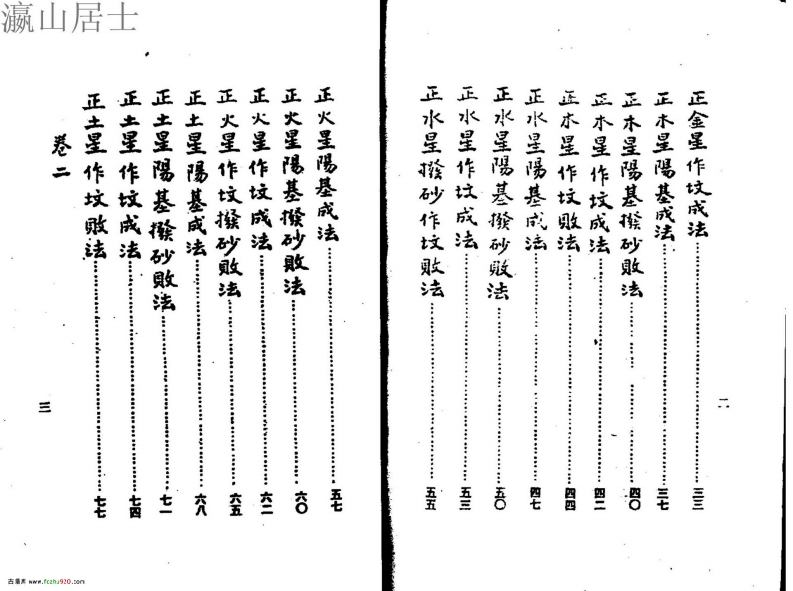 瀛山居士
正金星作坟成法 三三
正木星陽基成法 三七
正木星陽基撥砂敗法 四〇
正木星作坟成法 四二
正木星作坟敗法 四四
正水星陽基成法 四七
正水星陽基撥砂敗法 五〇
正水星作坟成法 五三
正水星撥砂作坟敗法 五五
二
正火星陽基成法 五七
正火星陽基撥砂敗法 六〇
正火星作坟成法 六二
正火星作坟撥砂敗法 六五
正土星陽基成法 六八
正土星陽基撥砂敗法 七一
正土星作坟成法 七四
正土星作坟敗法 七七
卷二
三
www.fczhu920.com